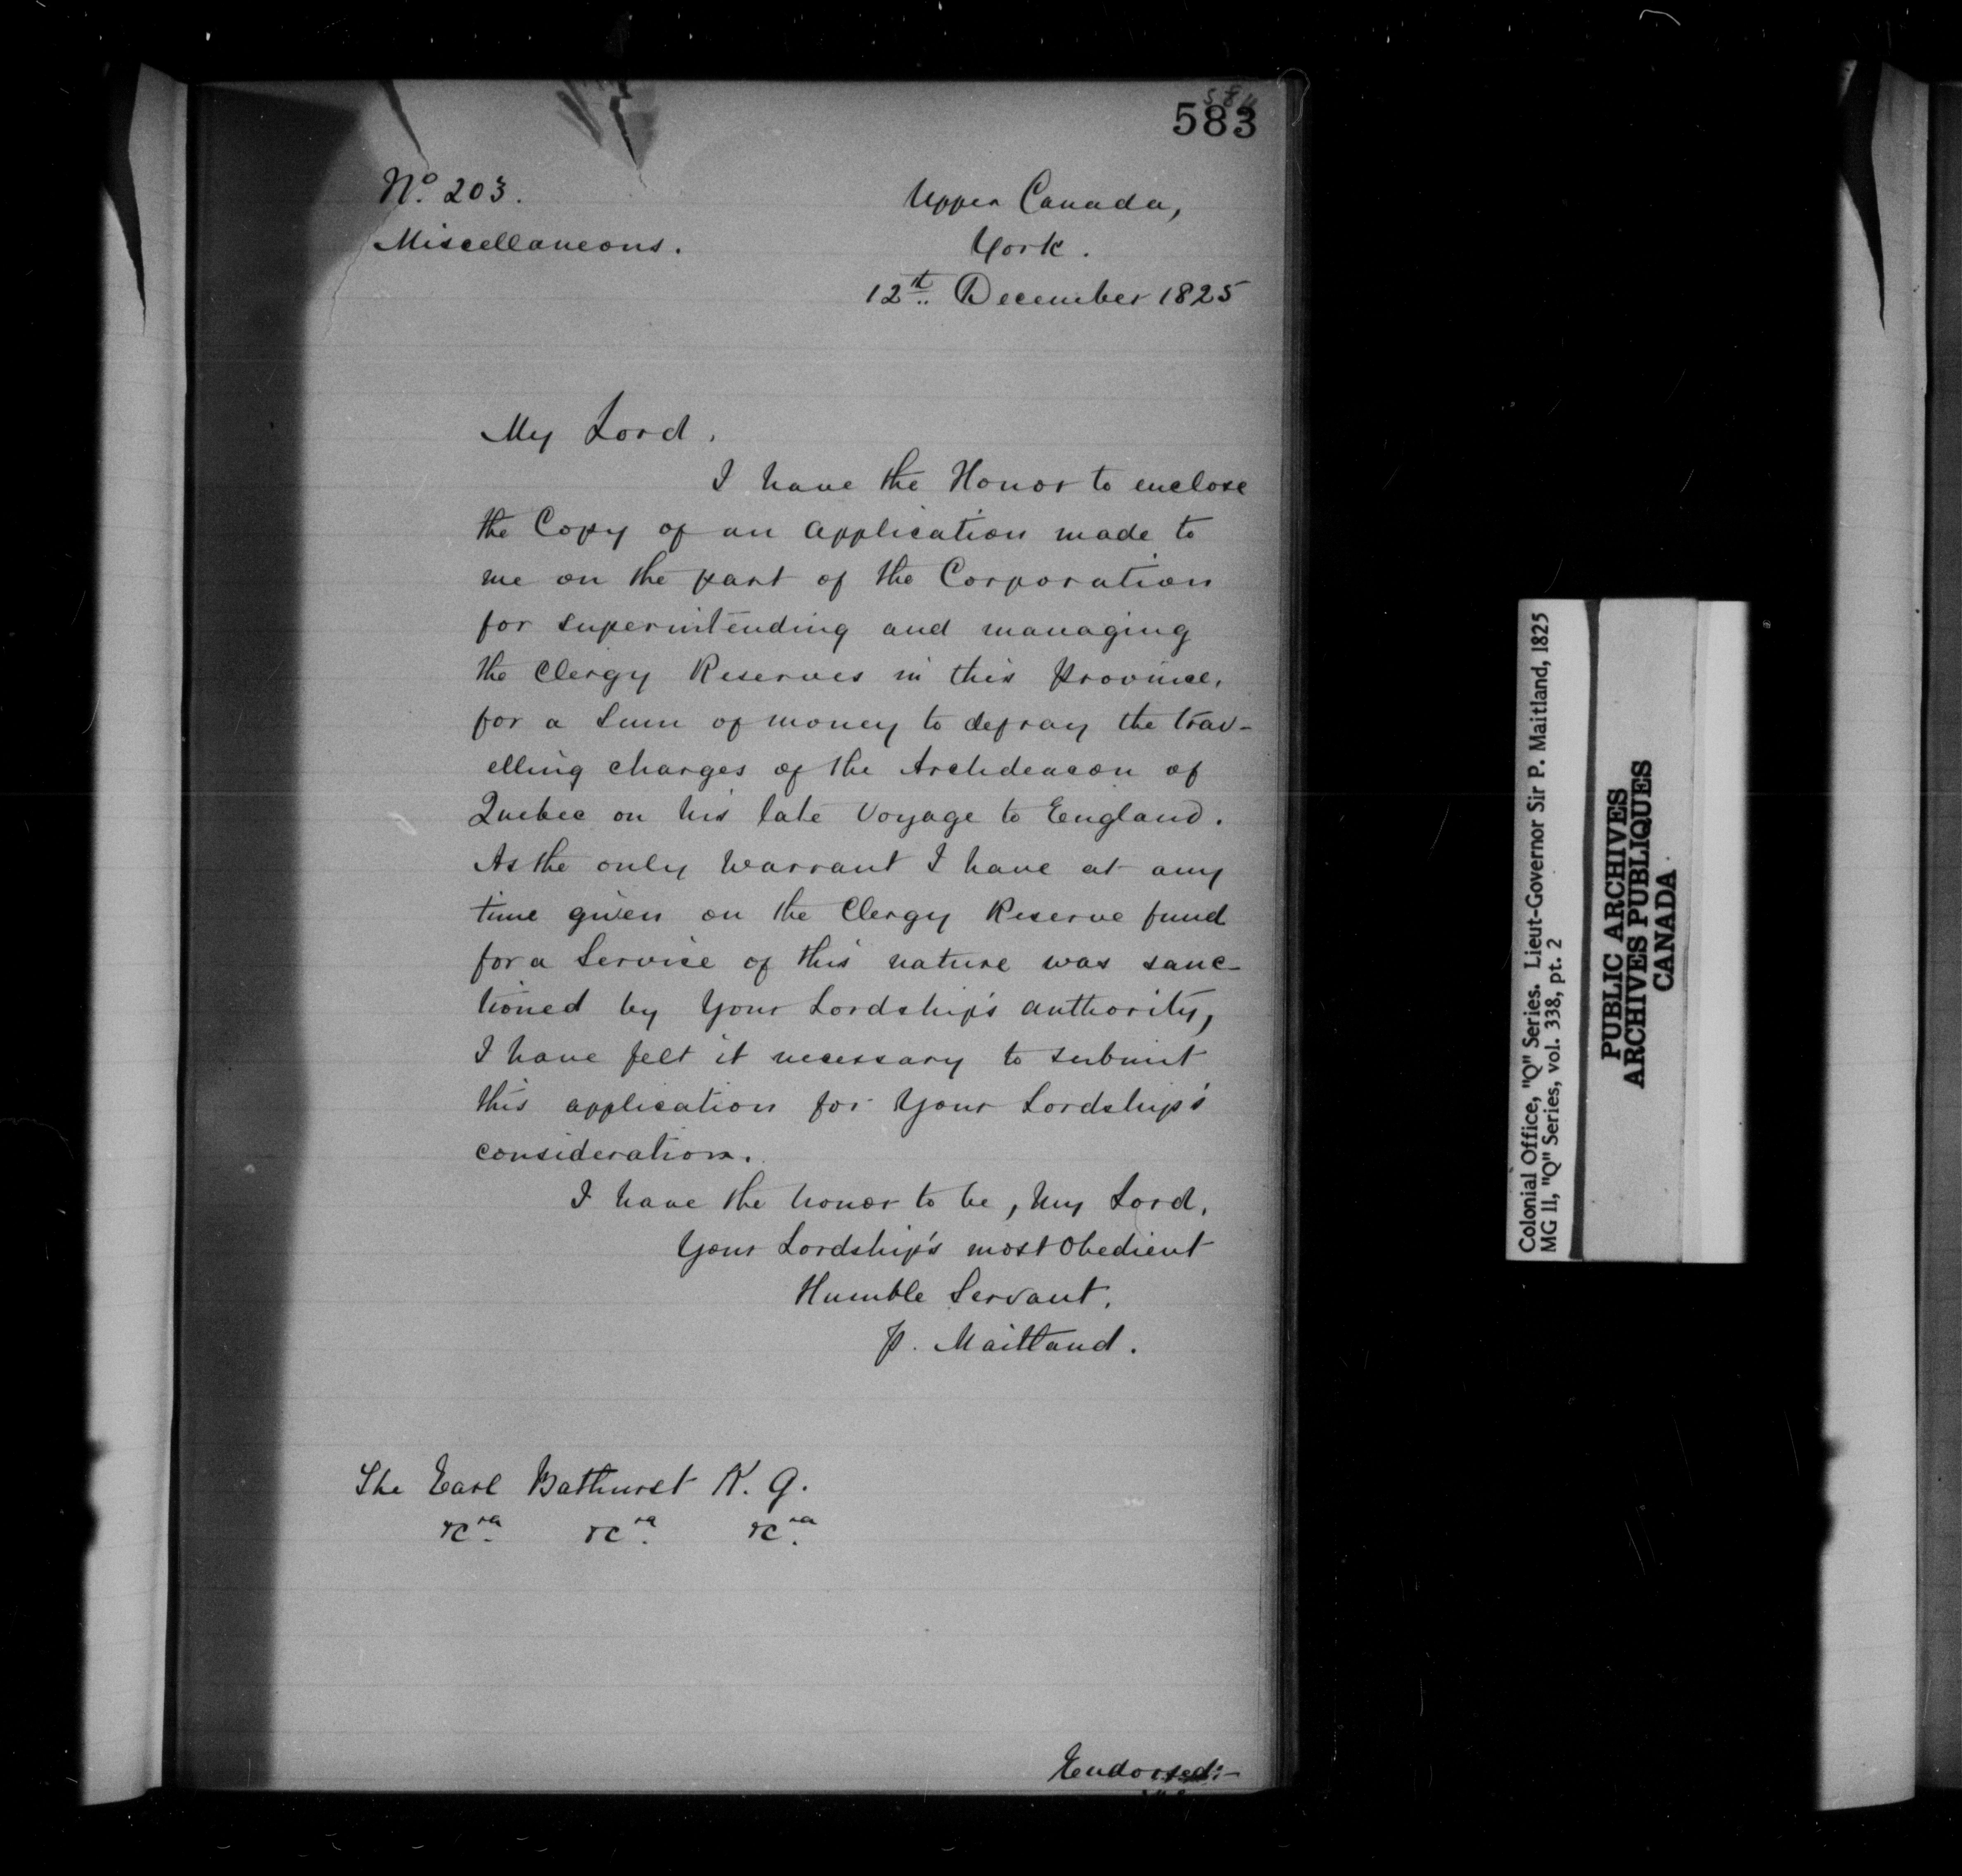 583
No. 203.
Miscellaneous.
Upper Canada,
York.
12th December 1825
My Lord,
I have the Honor to enclose
the Copy of an application made to
me on the part of the Corporation
for superintending and managing
the Clergy Reserves in this Province,
for a Sum of money to defray the trav-
elling charges of the Archdeacon of
Quebec on his late Voyage to England.
As the only Warrant I have at any
time given on the Clergy Reserve fund
for a Service of this nature was sanc-
tioned by Your Lordship's authority,
I have felt it necessary to submit
this application for Your Lordship's
consideration.
I have the honor to be, My Lord,
Your Lordship's most Obedient
Humble Servant,
P. Maitland.
The Earl Bathurst K. G.
&ca. &ca. &ca.
Endorsed:-
Colonial Office, "Q" Series. Lieut-Governor Sir P. Maitland, 1825
MG 11, "Q" Series, vol. 338, pt. 2
PUBLIC ARCHIVES
ARCHIVES PUBLIQUES
CANADA